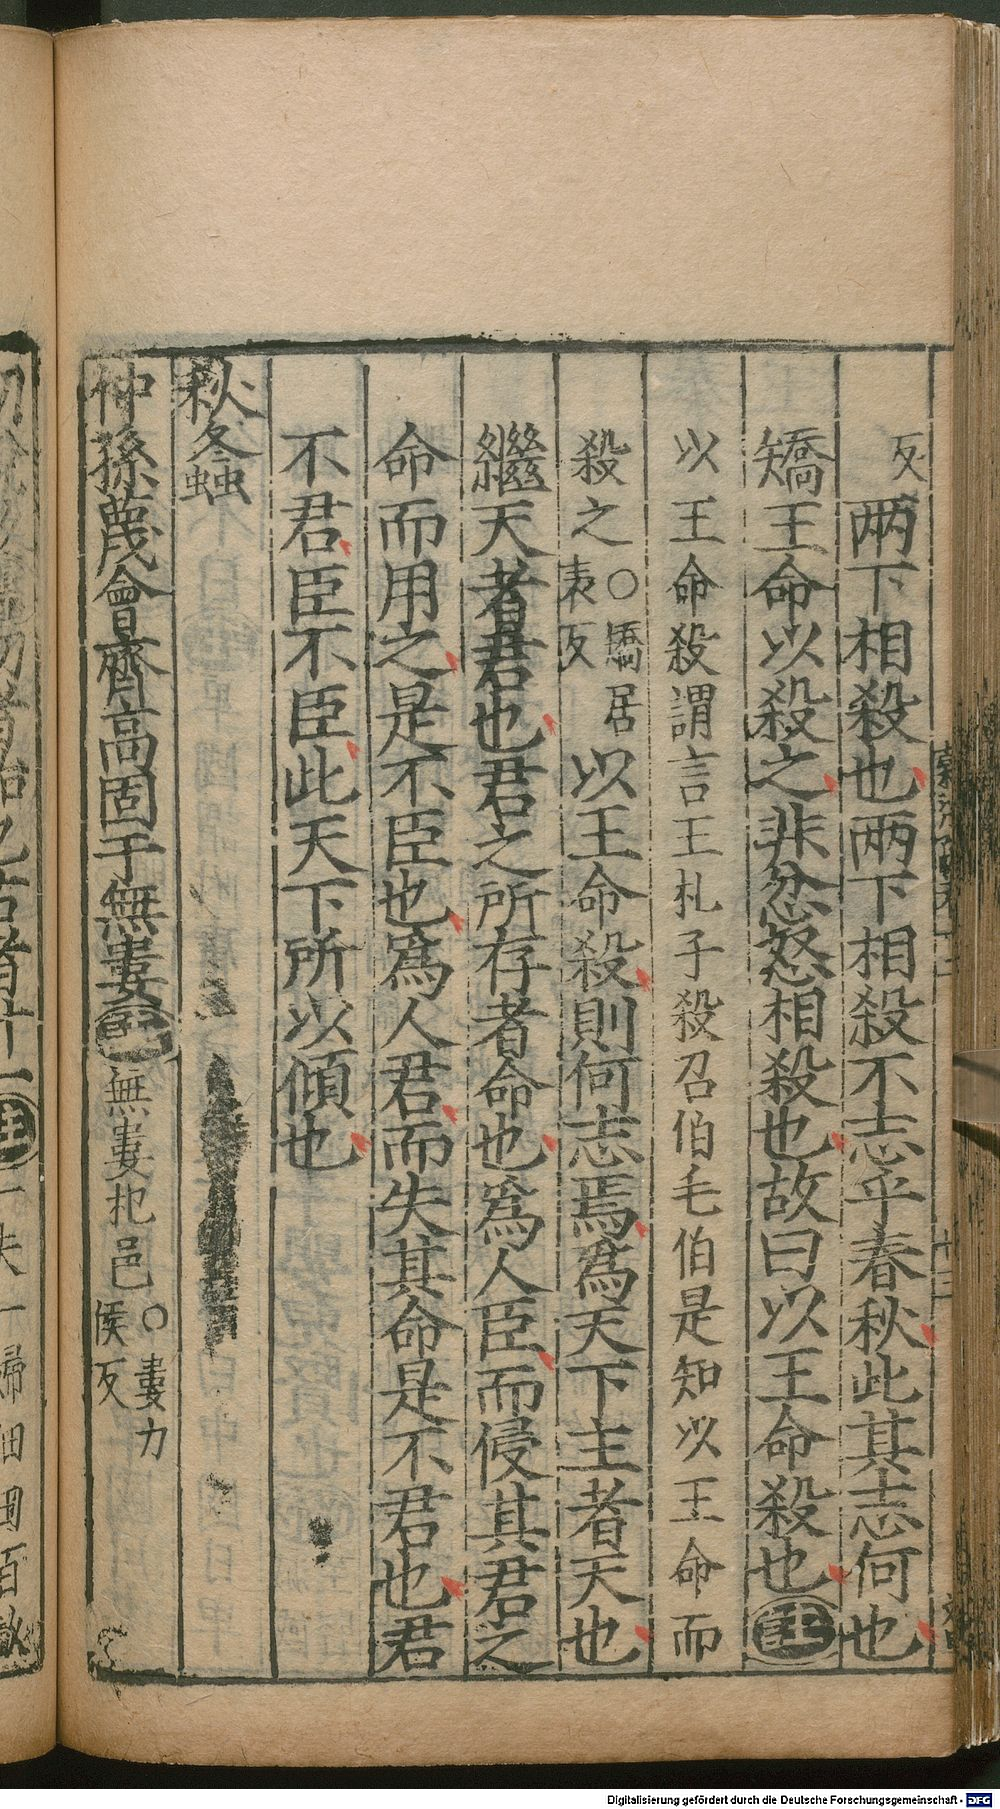 反 两下相殺也两下相殺不志乎春秋此其志何也
矯王命以殺之非忿怒相殺也故曰以王命殺也注
以王命殺謂言王札子殺召伯毛伯是知以王命而
殺之○矯居表反以王命殺則何志焉為天下主者天也
繼天者君也君之所存者命也為人臣而侵其君之
命而用之是不臣也為人君而失其命是不君也君
不君臣不臣此天下所以傾也
秋冬螽
仲孫蔑會齊高固于無婁注無婁杞邑○婁力侯反
Digitalisierung gefördert durch die Deutsche Forschungsgemeinschaft - DFG